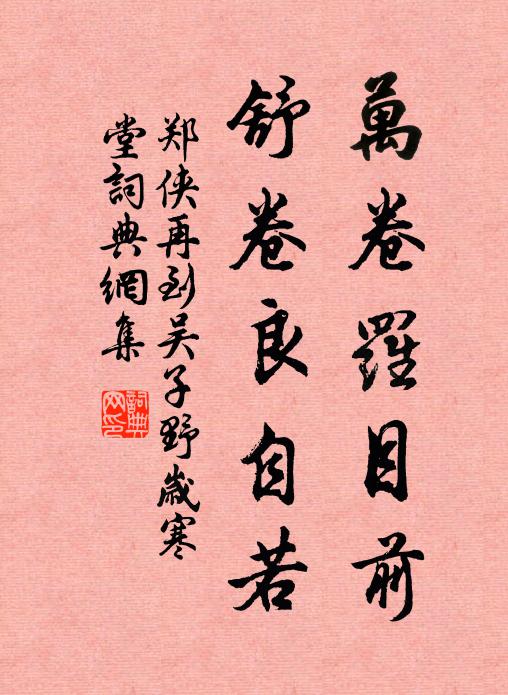 萬卷羅目前
舒卷良自若
郑侠再到吴子野歲寒
堂詞典網集
詞典
网印